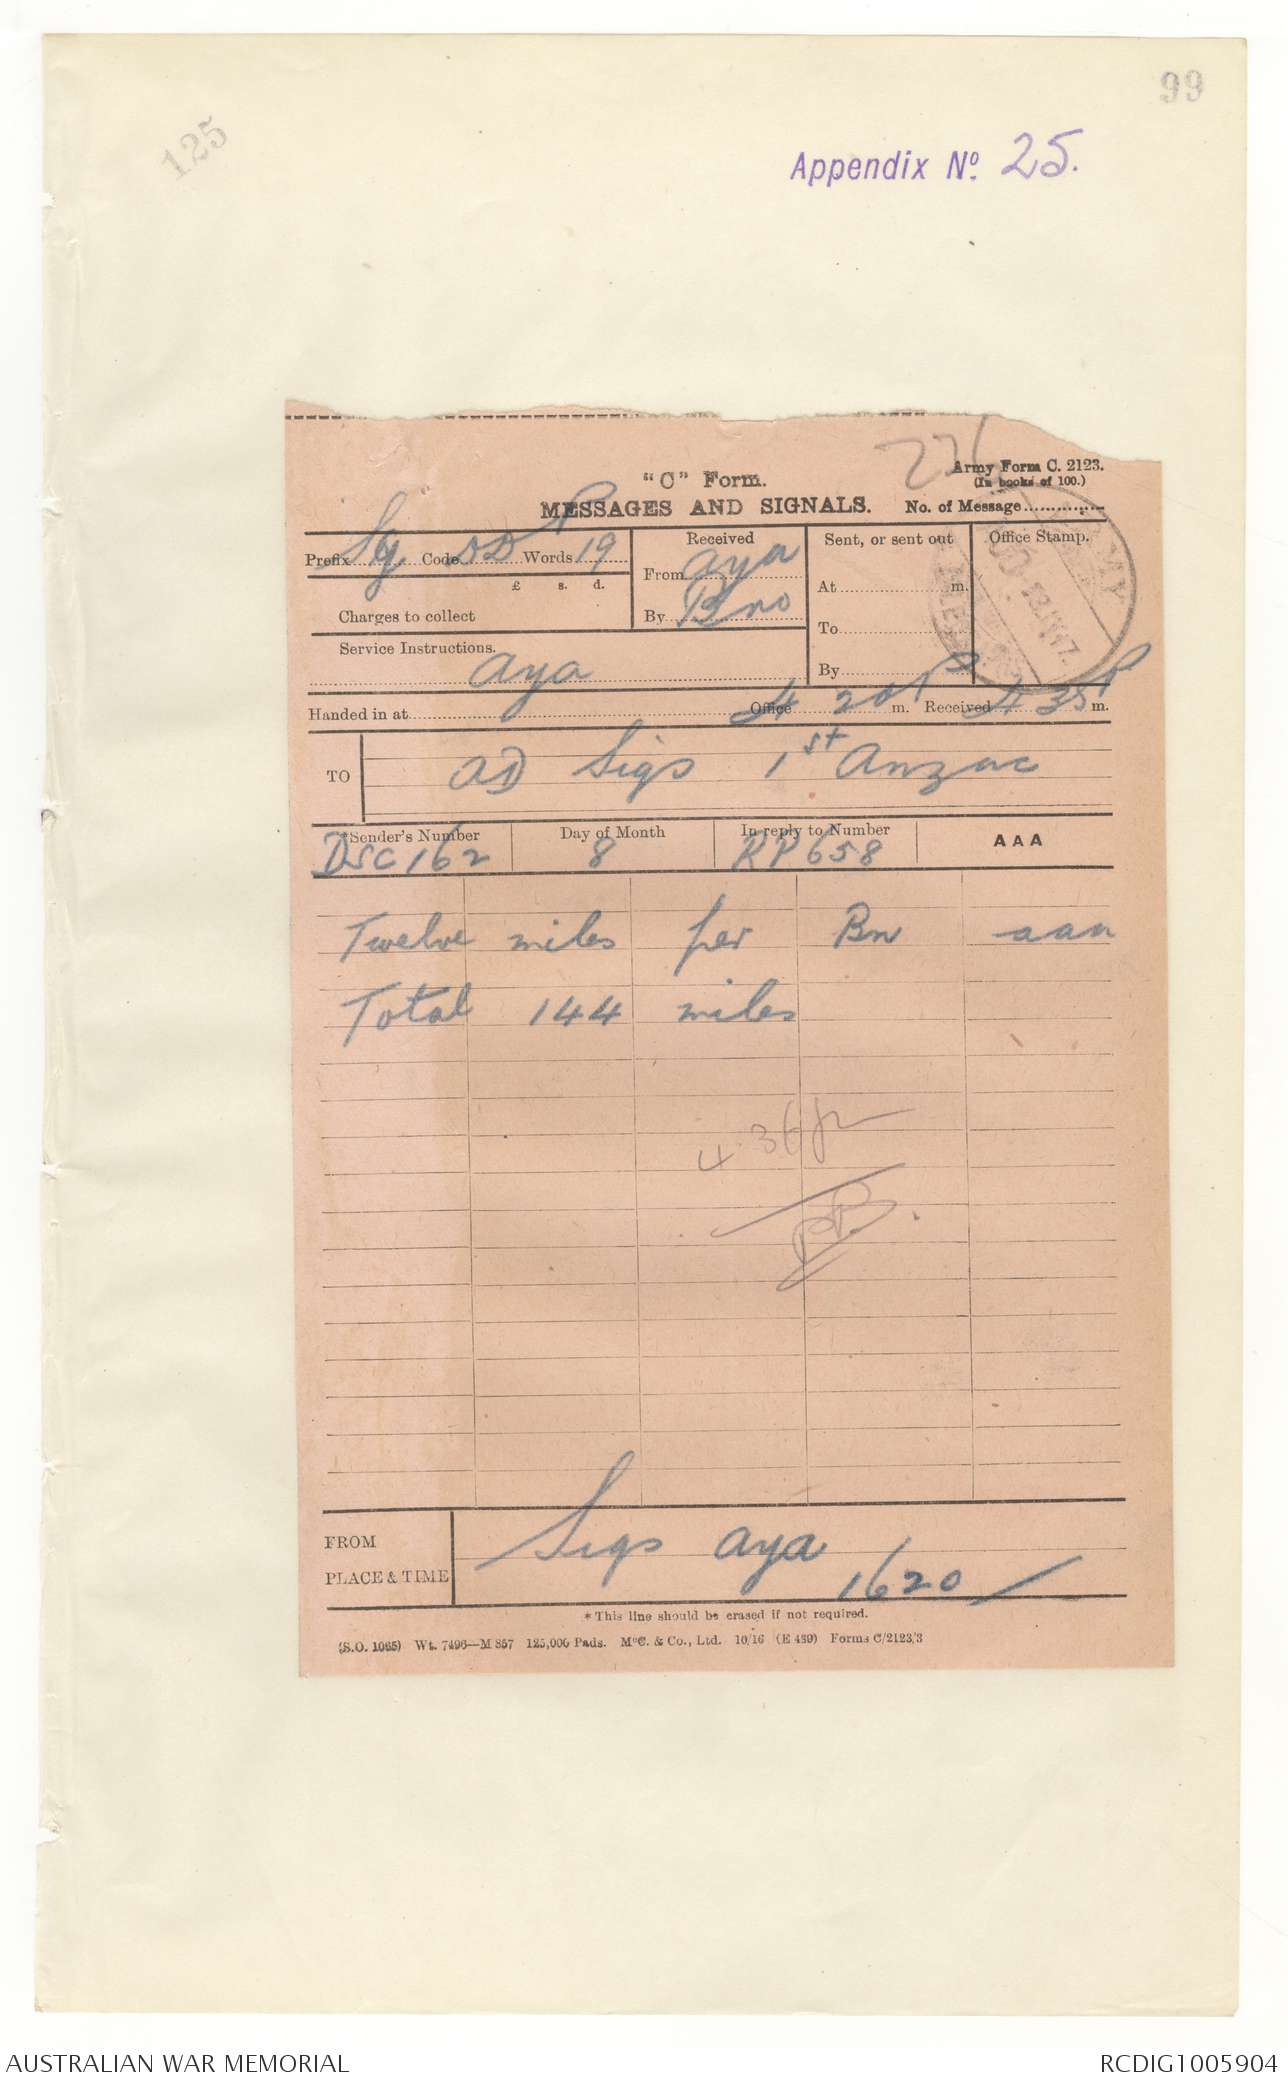 99
125
Appendix No. 25.
"C" Form.
Army Form C. 2123.
(In books of 100.)
MESSAGES AND SIGNALS.
No. of Message
Prefix Sg Code DD P Words 19
Received
From aya
By Bno
Sent, or sent out
At m.
To
By
Office Stamp.
ARMY
£ s. d.
Charges to collect
Service Instructions. aya
Handed in at Office 4 20 P m. Received 4 35 P m.
TO AD Sigs 1st Anzac
*Sender's Number Day of Month In reply to Number AAA
DSC 162 8 RP 658
Twelve miles per Bn aaa
Total 144 miles
4.36 pm
PB.
FROM Sigs aya
PLACE & TIME 1620
*This line should be erased if not required.
(S.O. 1065) Wt. 7496—M 857 125,000 Pads. McC. & Co., Ltd. 10/16 (E 439) Forms C/2123/3
AUSTRALIAN WAR MEMORIAL RCDIG1005904